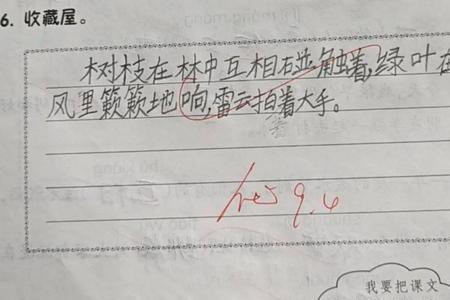 6. 收藏屋。
树枝在林中互相碰触着,绿叶在
风里簌簌地响,雷云拍着大手。
着
9.6
我要把课文